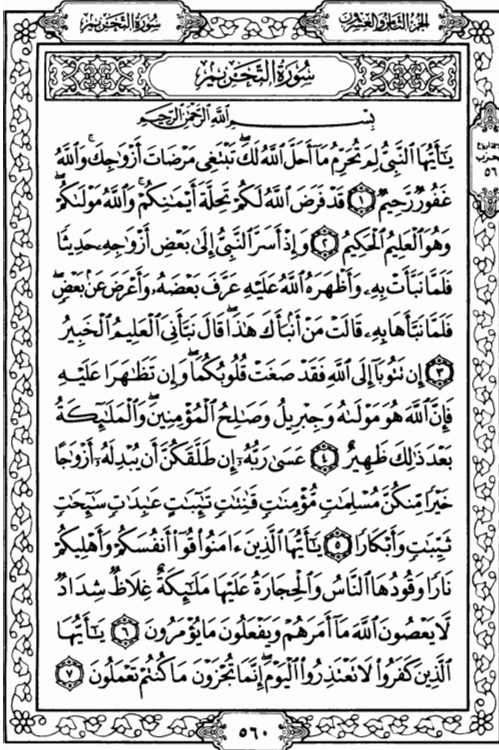 سُورَةُ التَّحْرِيمِ
الجُزْءُ الثَّامِنُ وَالعِشْرُونَ
سُورَةُ التَّحْرِيمِ
بِسْمِ اللَّهِ الرَّحْمَٰنِ الرَّحِيمِ
يَٰٓأَيُّهَا ٱلنَّبِىُّ لِمَ تُحَرِّمُ مَآ أَحَلَّ ٱللَّهُ لَكَ ۖ تَبْتَغِى مَرْضَاتَ أَزْوَٰجِكَ ۚ وَٱللَّهُ
غَفُورٌ رَّحِيمٌ ١ قَدْ فَرَضَ ٱللَّهُ لَكُمْ تَحِلَّةَ أَيْمَٰنِكُمْ ۚ وَٱللَّهُ مَوْلَىٰكُمْ ۖ
وَهُوَ ٱلْعَلِيمُ ٱلْحَكِيمُ ٢ وَإِذْ أَسَرَّ ٱلنَّبِىُّ إِلَىٰ بَعْضِ أَزْوَٰجِهِۦ حَدِيثًا
فَلَمَّا نَبَّأَتْ بِهِۦ وَأَظْهَرَهُ ٱللَّهُ عَلَيْهِ عَرَّفَ بَعْضَهُۥ وَأَعْرَضَ عَنۢ بَعْضٍ ۖ
فَلَمَّا نَبَّأَهَا بِهِۦ قَالَتْ مَنْ أَنۢبَأَكَ هَٰذَا ۖ قَالَ نَبَّأَنِىَ ٱلْعَلِيمُ ٱلْخَبِيرُ
٣ إِن تَتُوبَآ إِلَى ٱللَّهِ فَقَدْ صَغَتْ قُلُوبُكُمَا ۖ وَإِن تَظَٰهَرَا عَلَيْهِ
فَإِنَّ ٱللَّهَ هُوَ مَوْلَىٰهُ وَجِبْرِيلُ وَصَٰلِحُ ٱلْمُؤْمِنِينَ ۖ وَٱلْمَلَٰٓئِكَةُ
بَعْدَ ذَٰلِكَ ظَهِيرٌ ٤ عَسَىٰ رَبُّهُۥٓ إِن طَلَّقَكُنَّ أَن يُبْدِلَهُۥٓ أَزْوَٰجًا
خَيْرًا مِّنكُنَّ مُسْلِمَٰتٍ مُّؤْمِنَٰتٍ قَٰنِتَٰتٍ تَٰٓئِبَٰتٍ عَٰبِدَٰتٍ سَٰٓئِحَٰتٍ
ثَيِّبَٰتٍ وَأَبْكَارًا ٥ يَٰٓأَيُّهَا ٱلَّذِينَ ءَامَنُوا۟ قُوٓا۟ أَنفُسَكُمْ وَأَهْلِيكُمْ
نَارًا وَقُودُهَا ٱلنَّاسُ وَٱلْحِجَارَةُ عَلَيْهَا مَلَٰٓئِكَةٌ غِلَاظٌ شِدَادٌ
لَّا يَعْصُونَ ٱللَّهَ مَآ أَمَرَهُمْ وَيَفْعَلُونَ مَا يُؤْمَرُونَ ٦ يَٰٓأَيُّهَا
ٱلَّذِينَ كَفَرُوا۟ لَا تَعْتَذِرُوا۟ ٱلْيَوْمَ ۖ إِنَّمَا تُجْزَوْنَ مَا كُنتُمْ تَعْمَلُونَ ٧
٥٦٠